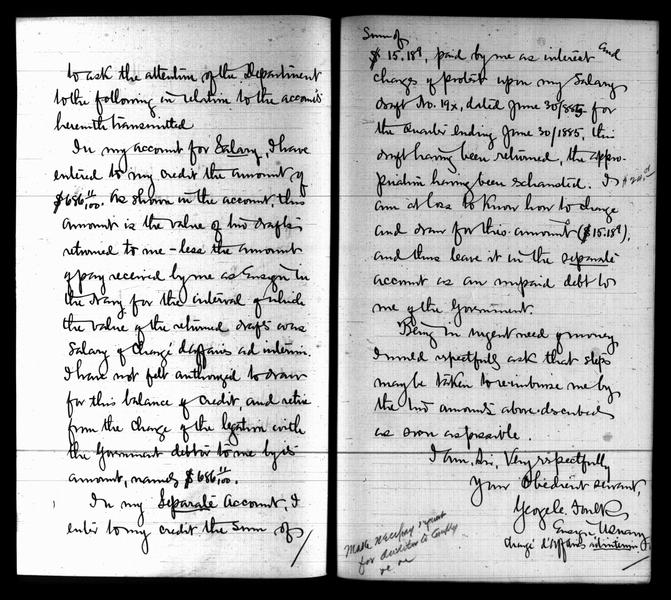 to ask the attention of the Department
to the following in relation to the accounts
herewith transmitted
In my account for Salary, I have
entered to my credit the amount of
$686 11/100. As shown in the account, this
amount is the value of two drafts
returned to me - less the amount
of pay received by me as Ensign in
the Navy for the interval of which
the value of the returned drafts was
Salary of Chargé d'affaires ad interim.
I have not felt authorized to draw
for this balance of credit, and retire
from the charge of the legation with
the Government debtor to me by its
amount, namely $686 11/100.
In my Separate Account, I
enter to my credit the sum of
Sum of
$15.18, paid by me as interest and
charges of protest upon my Salary
draft No. 19x, dated June 30/885 for
the quarter ending June 30/1885, this
draft having been returned, the appro-
priation having been exhausted. I
am at loss to know how to charge
and draw for this amount ($15.18),
and thus leave it in the separate
account as an unpaid debt to
me of the Government.
Being in urgent need of money
I would respectfully ask that steps
may be taken to reimburse me by
the two amounts above-described
as soon as possible.
I am, Sir, Very respectfully
Your Obedient servant,
George C. Foulk,
Ensign, U.S. Navy,
Chargé d'Affaires ad interim
Make necessary
for auditor to